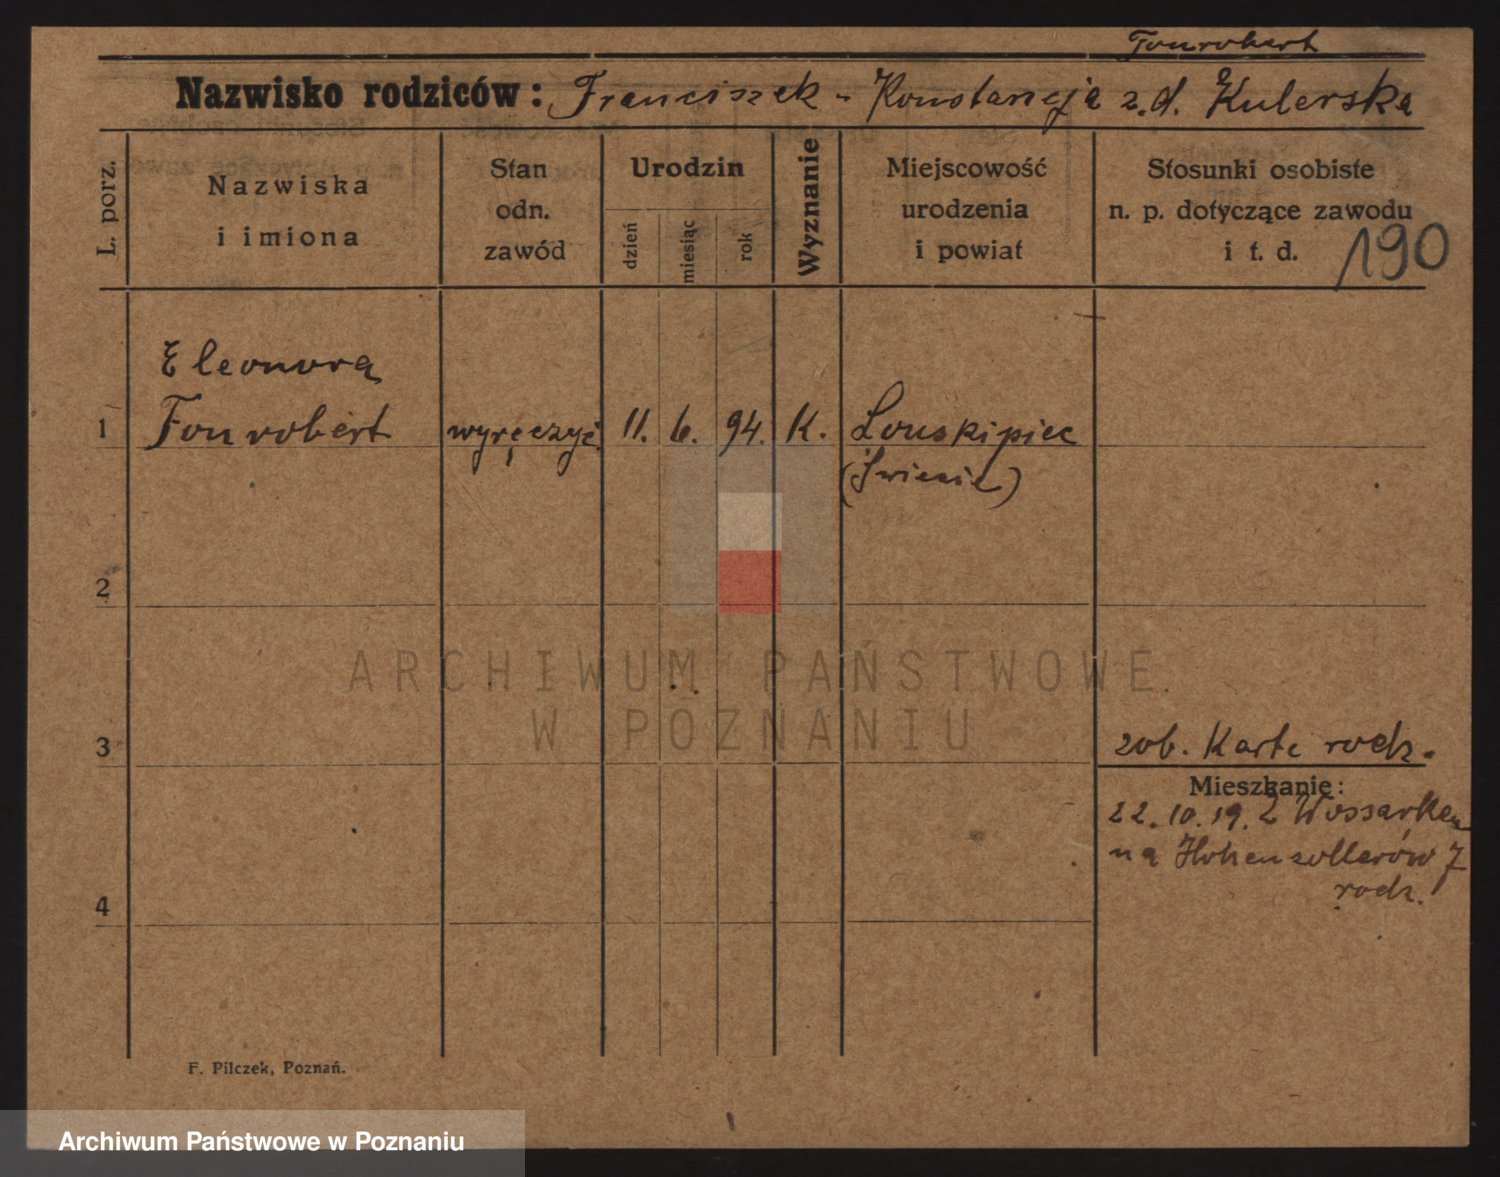 Fourobert
Nazwisko rodziców: Franciszek - Konstancja z.d. Kulerska
L. porz.
Nazwiska
i imiona
Stan
odn.
zawód
Urodzin
dzień
miesiąc
rok
Wyznanie
Miejscowość
urodzenia
i powiat
Stosunki osobiste
n. p. dotyczące zawodu
i t. d.
190
Eleonora
1 Fourobert 11. 6. 94. K.
(Swiecie)
2
3 zob. Karte rodz.
Mieszkanie:
22.10.19. z Wossarken
na Hohenzollerów 7
rodz.
4
F. Pilczek, Poznań.
ARCHIWUM PAŃSTWOWE
W POZNANIU
Archiwum Państwowe w Poznaniu